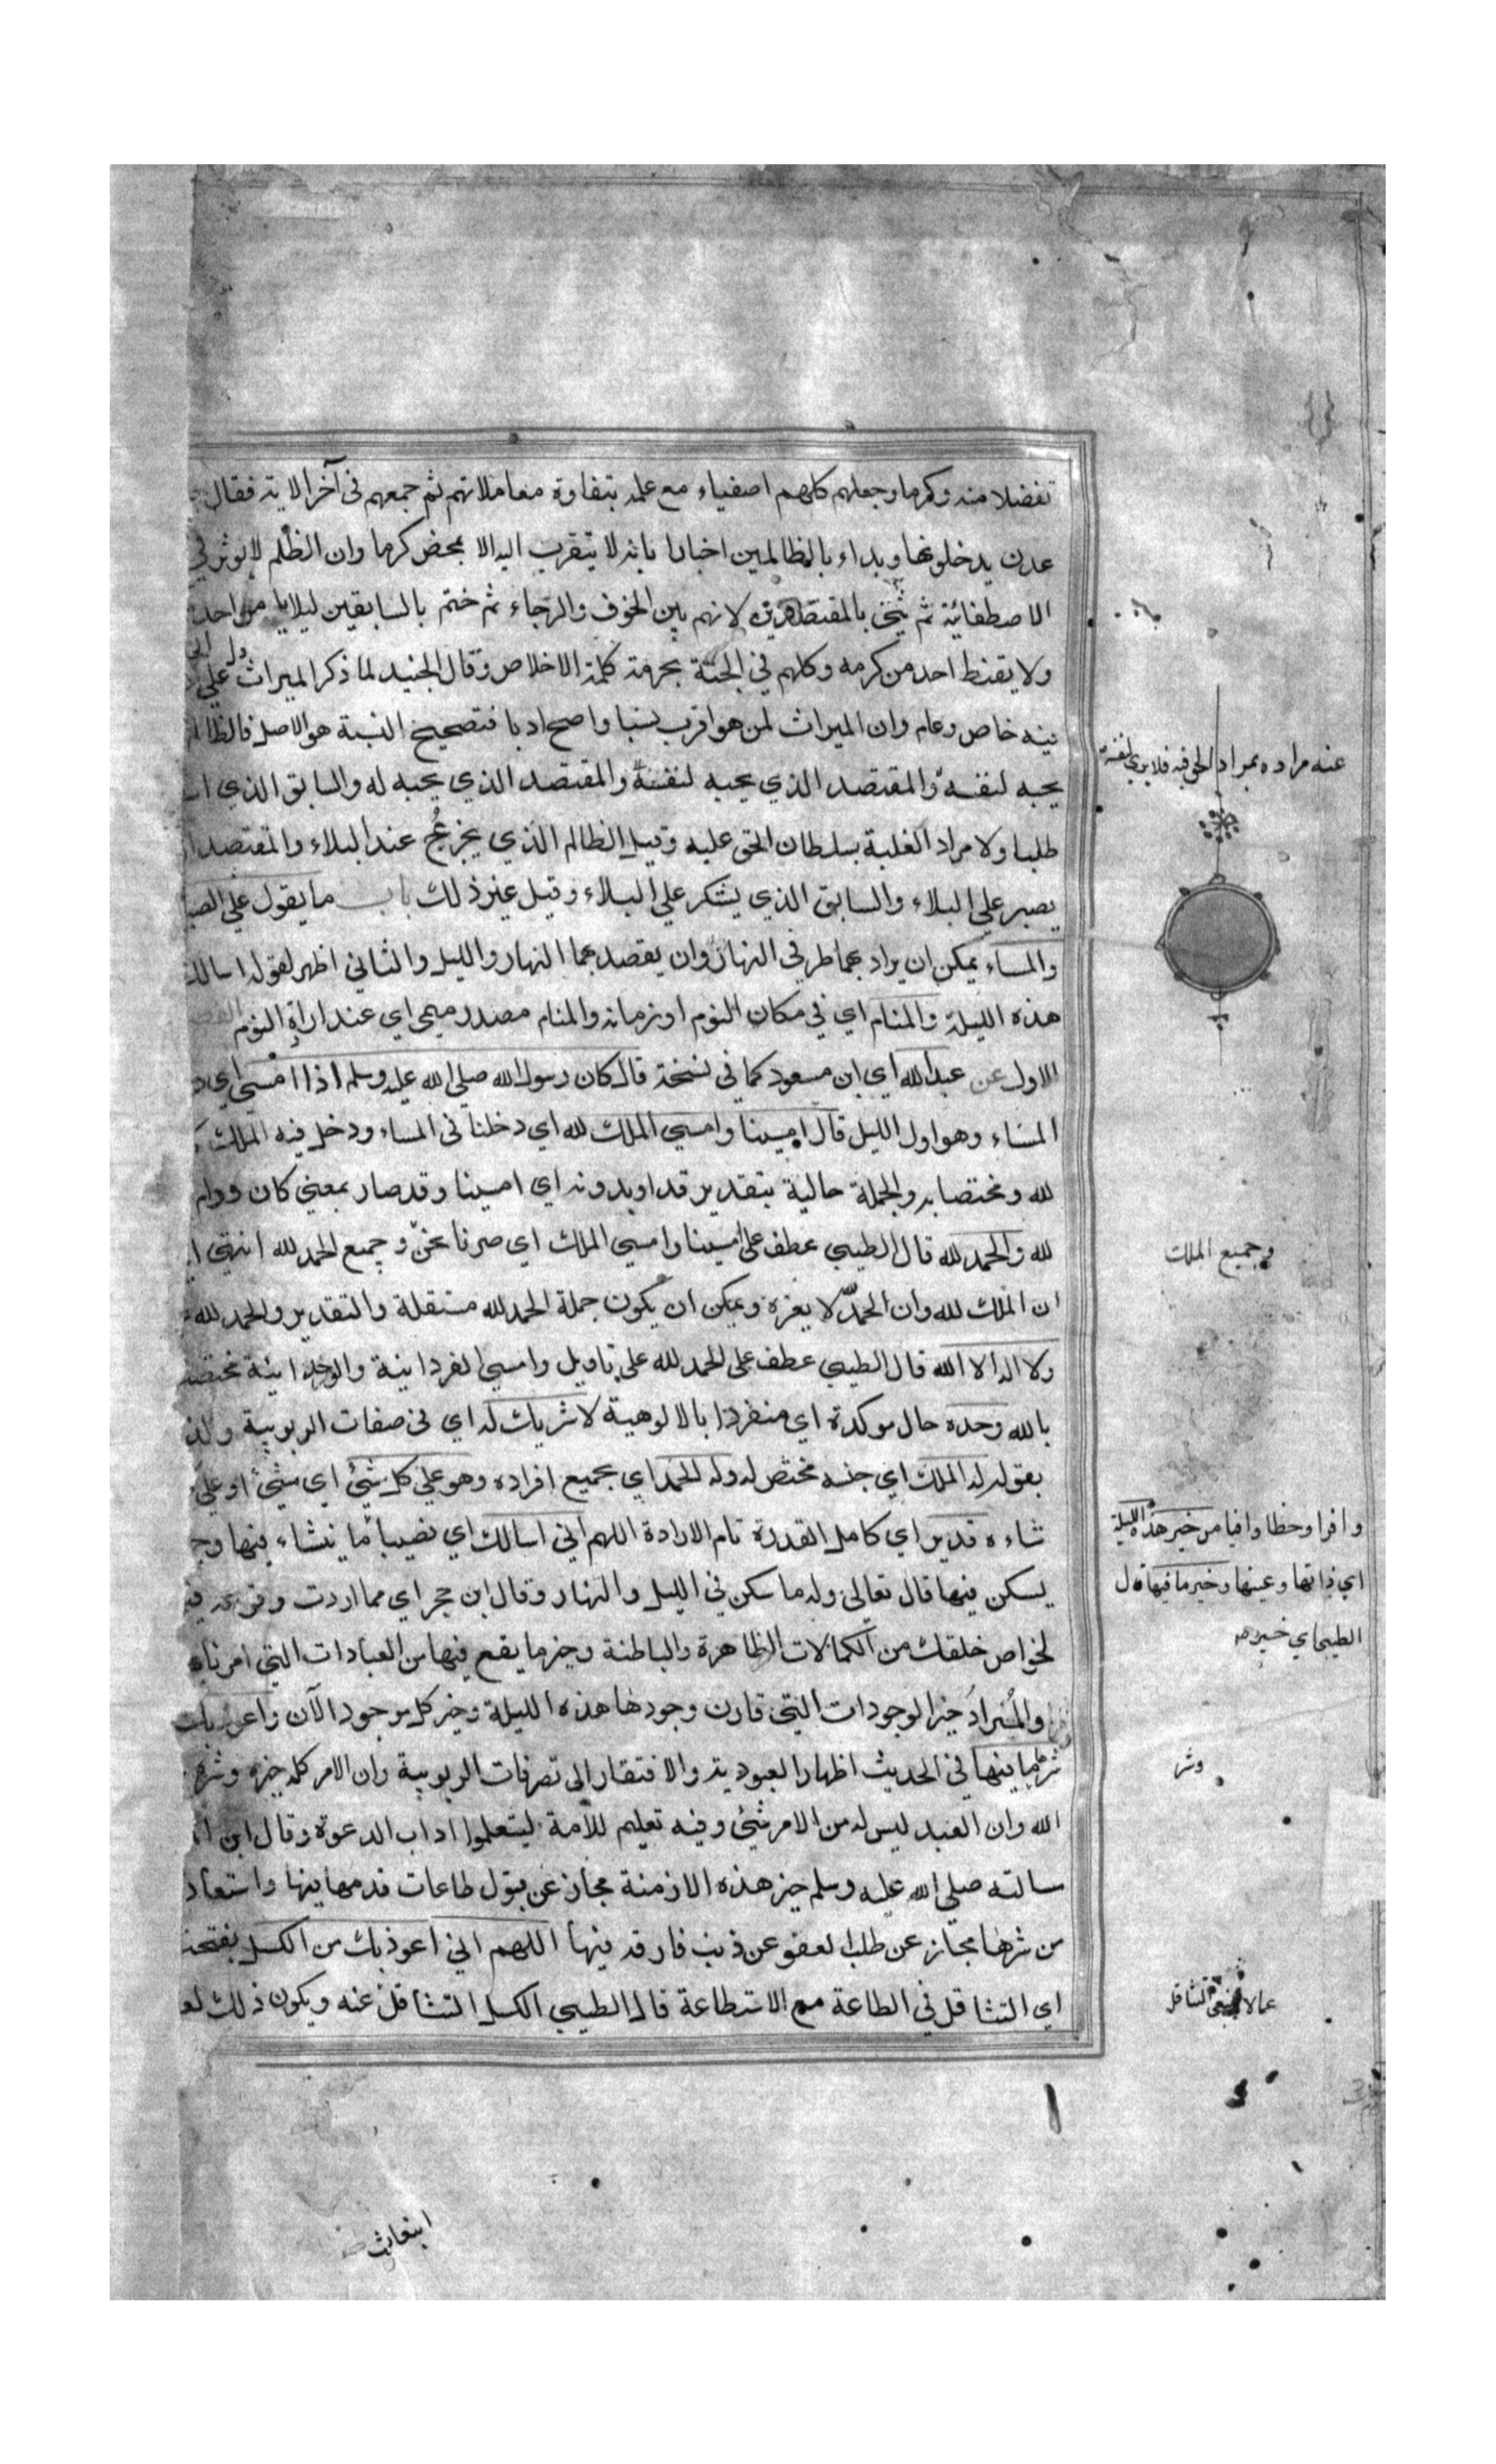 تفضلا منه وكرما وجعلهم كلهم اصفياء مع علمه بتفاوة معاملاتهم ثم جمعهم في آخر الاية فقال
عدن يدخلونها وبداء بالظالمين اخبارا بانه لا يتقرب اليه الا بمحض كرما وان الظلم لا يوثر في
الاصطفائية ثم ثني بالمقتصدين لانهم بين الخوف والرجاء ثم ختم بالسابقين ليلا يا من احد
ولا يقنط احد من كرمه وكلهم في الجنة بحرمة كلمة الاخلاص وقال الجنيد لما ذكر الميراث دل علي
فيه خاص وعام وان الميراث لمن هو اقرب نسبا واصح ادبا فتصحيح النسبة هو الاصل فالظالم
يحبه لنفسه والمقتصد الذي يحبه لنفسه والمقتصد الذي يحبه له والسابق الذي
عنه مراده بمراد الحق فيه فلا يري لنفسه
طلبا ولا مراد الغلبة سلطان الحق عليه وقيل الظالم الذي يجزع عند البلاء والمقتصد
يصبر علي البلاء والسابق الذي يشكر علي البلاء وقيل غير ذلك باب ما يقول علي
والمساء يمكن ان يراد بهما طرفي النهار وان يقصد بهما النهار والليل والثاني اظهر لقوله اسالك
هذه الليلة والمنام اي في مكان النوم او زمانه والمنام مصدر ميمي اي عند ارادة النوم
الاول عن عبد الله اي ابن مسعود كما في نسخة قال كان رسول الله صلي الله عليه وسلم اذا امسي اي
المساء وهو اول الليل قال امسينا وامسي الملك لله اي دخلنا في المساء ودخل فيه الملك
لله ومختصا به والجملة حالية بتقدير قد او بدونه اي امسينا وقد صار بمعني كان ودام
لله والحمد لله قال الطيبي عطف علي امسينا وامسي الملك اي صرنا نحن وجميع الحمد لله انتهي
وجميع الملك
ان الملك لله وان الحمد لله لا بغيره ويمكن ان يكون جملة الحمد لله مستقلة والتقدير والحمد لله
ولا اله الا الله قال الطيبي عطف علي الحمد لله علي تاويل وامسي الفردانية والوحدانية مختصة
بالله وحده حال موكدة اي منفردا بالالوهية لا شريك له اي في صفات الربوبية
بقوله له الملك اي جنسه مختص له وله الحمد اي بجميع افراده وهو علي كل شيئ اي شيئ او علي
شاءه قدير اي كامل القدرة تام الارادة اللهم اني اسالك اي نصيبا ما ينشاء فيها
وافرا وحظا وافيا من خير هذه الليلة
اي ذاتها وعينها وخير ما فيها قال
الطيبي اي خير ما
يسكن فيها قال تعالي وله ما سكن في الليل والنهار وقال ابن حجر اي مما اردت وقوعه
لخواص خلقك من الكمالات الظاهرة والباطنة وخير ما يقع فيها من العبادات التي امرنا
والمراد خير الوجودات التي قارن وجودها هذه الليلة وخير كل موجود الآن واعوذ بك
شر ما فيها في الحديث اظهار العبودية والافتقار الي تصرفات الربوبية وان الامر كله خيره وشره
وشر
الله وان العبد ليس له من الامر شيئ وفيه تعليم للامة ليتعلموا اداب الدعوة وقال ابن
سالته صلي الله عليه وسلم خير هذه الازمنة مجاز عن قبول طاعات قدمها فيها واستعاذ
من شرها مجاز عن طلب العفو عن ذنب فارقه فيها اللهم اني اعوذ بك من الكسل
اي التثاقل في الطاعة مع الاستطاعة قال الطيبي الكسل التثاقل عنه ويكون ذلك
عما لا ينبغي التثاقل
١